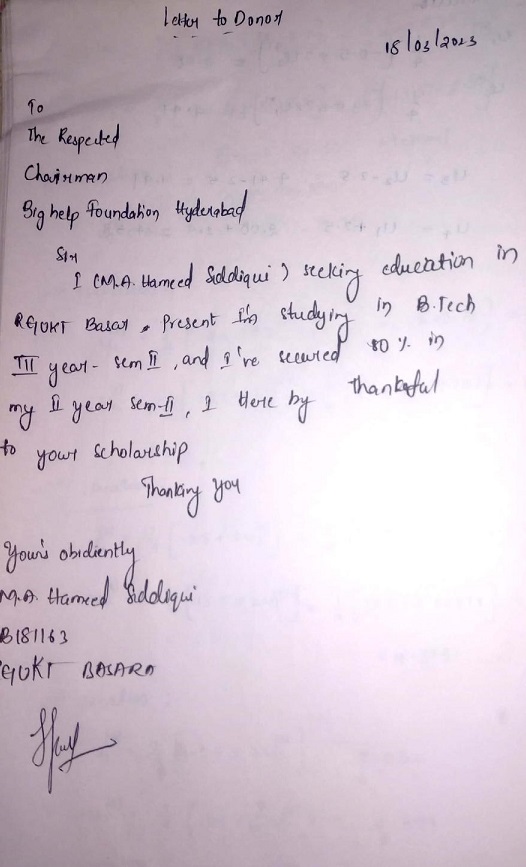 Letter to Donor
18/03/2023
To
The Respected
Chairman
Big help Foundation Hyderabad
Sir
I (M.A. Hameed Siddiqui) seeking education in
RGUKT Basar, Present I'm studying in B.Tech
III year - sem II, and I've secured 80% in
my II year sem-II, I Here by thankful
to your scholarship
Thanking you
Your's obidiently
M.A. Hameed Siddiqui
B181163
GUKT BASARA